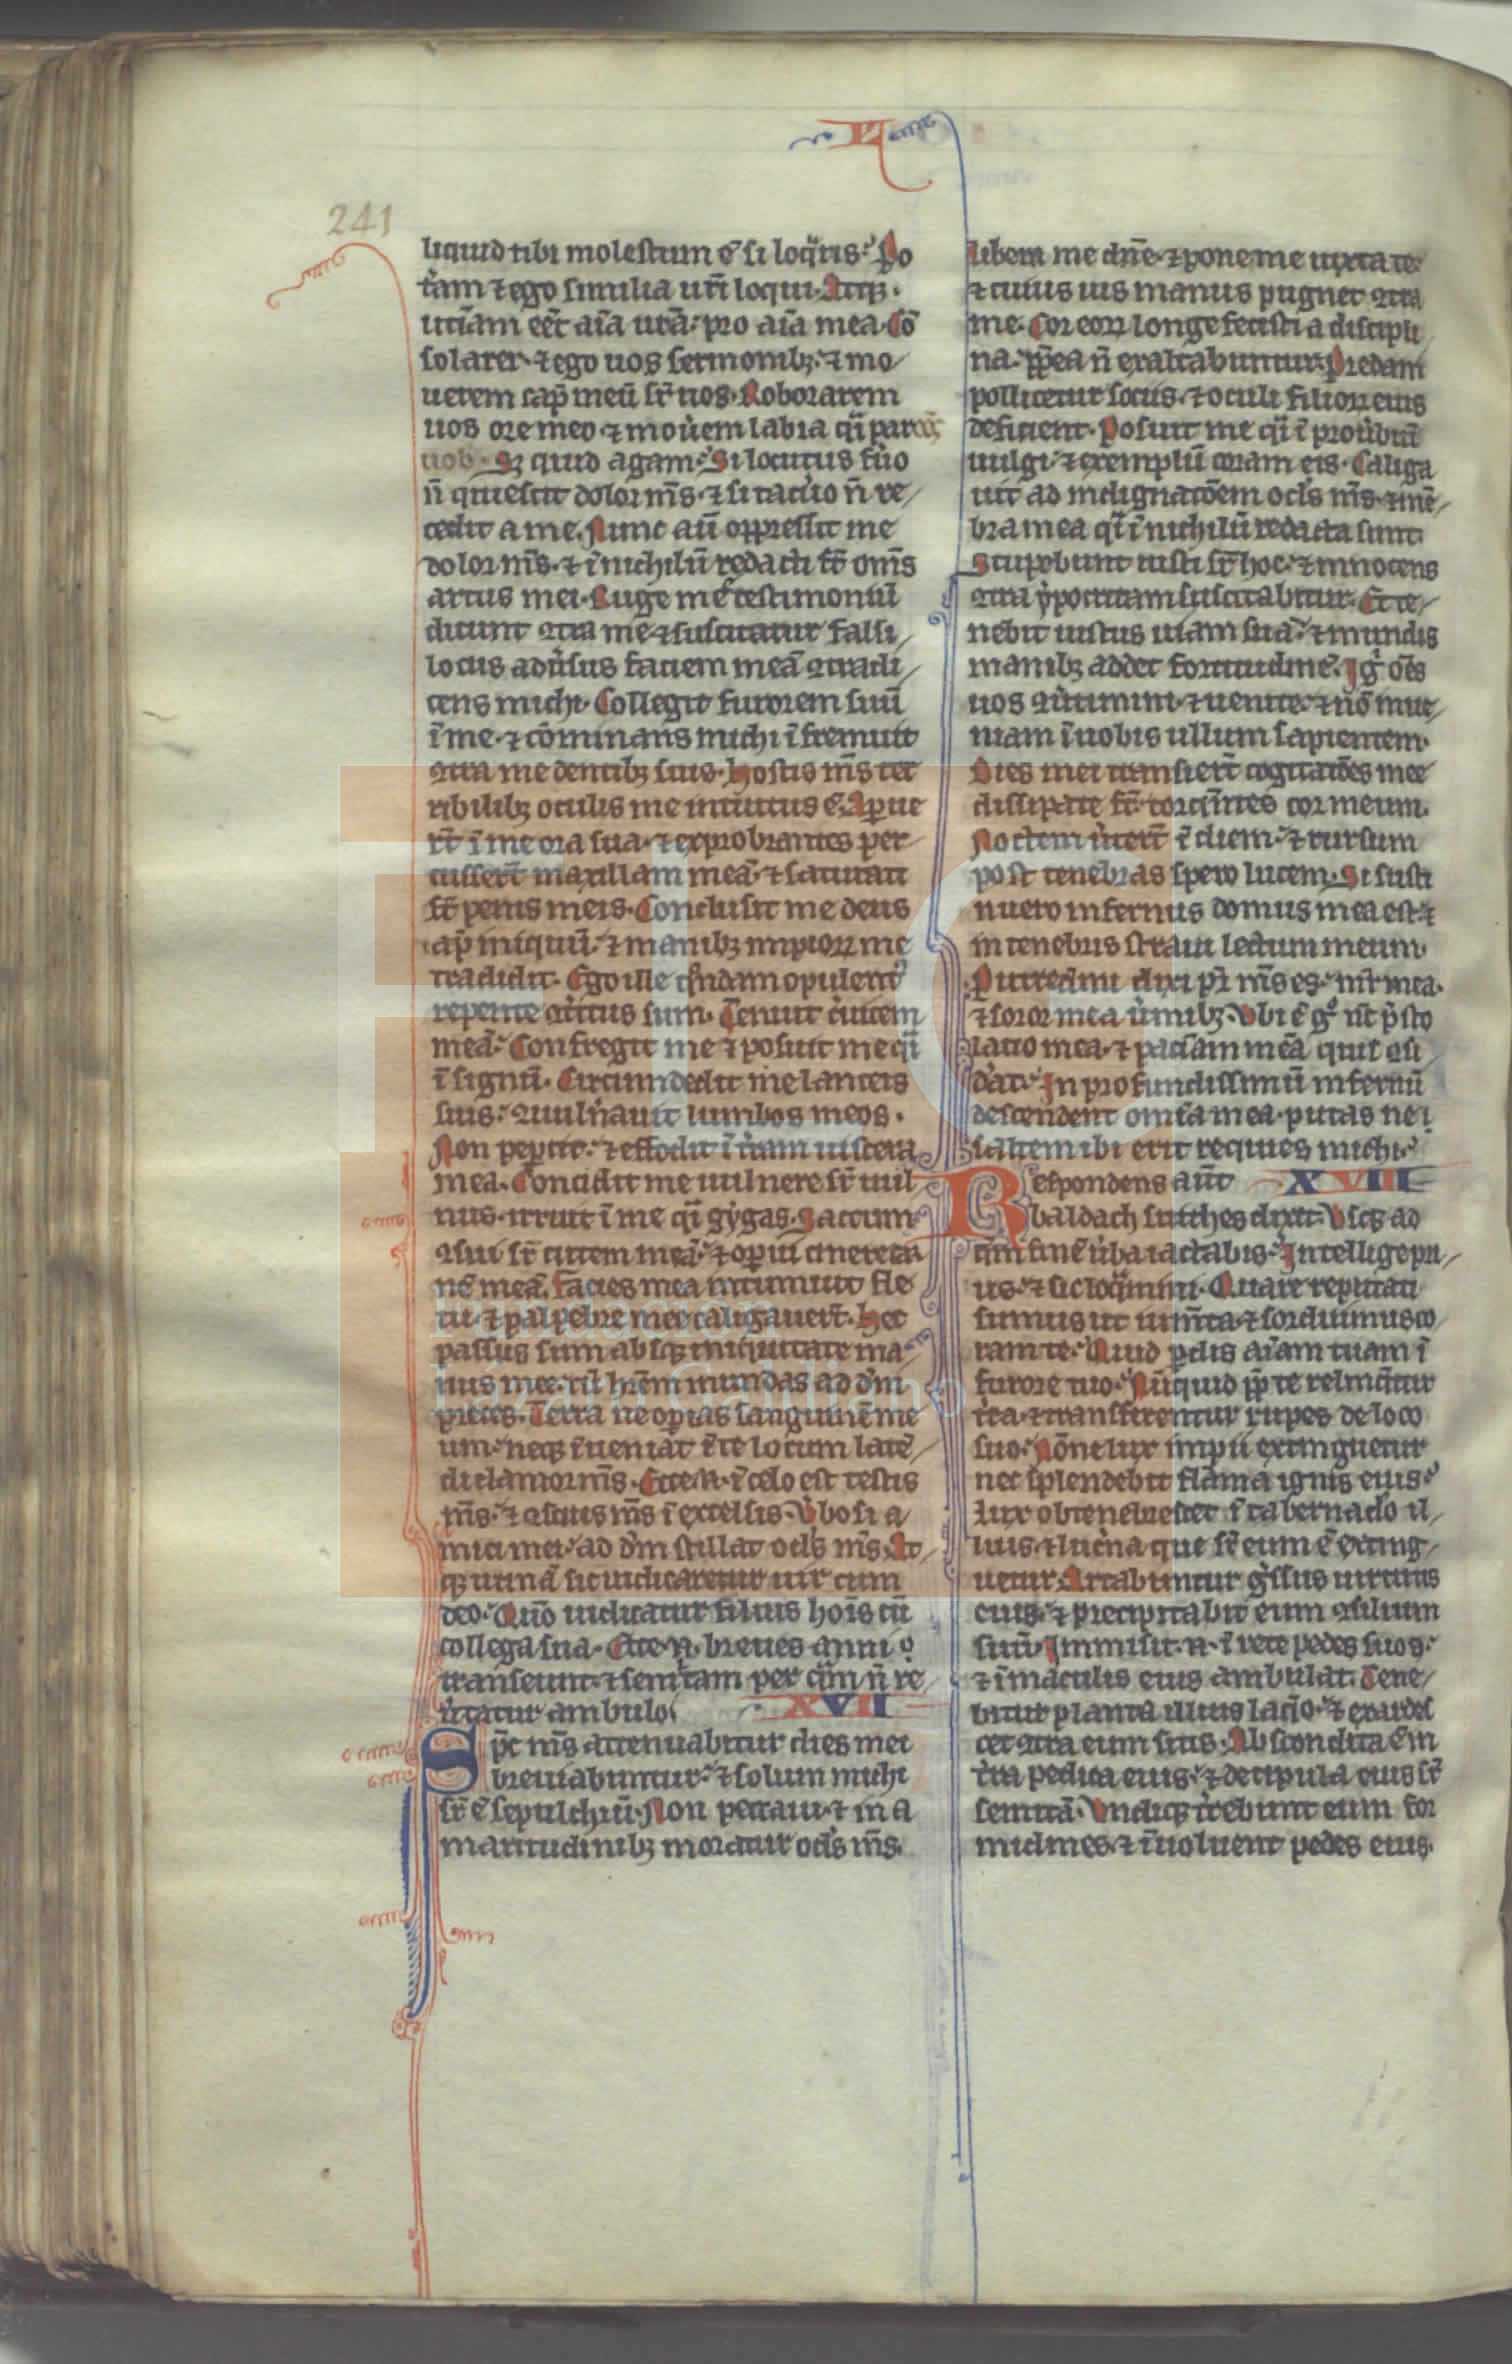 L
241
liquid tibi molestum ē si loq̄ris. Po
tam ⁊ ego similia ur̄i loqui. Atq;
utinam eēt aīa ur̄a pro aīa mea. Cō
solarer ⁊ ego uos sermonib; ⁊ mo
uerem cap̄ meū sr̄ uos. Roborarem
uos ore meo ⁊ mouerem labia q̄i parcēs
uob. Sz quid agam. Si locutus fuero
n̄ quiescit dolor m̄s ⁊ si tacuero n̄ re
cedit a me. Nunc aū oppressit me
dolor m̄s ⁊ ī nichilū redacti st̄ om̄s
artus mei. Ruge meē testimoniū
dicunt ꝯtra me ⁊ suscitatur falsi
locus aduersus faciem meā ꝯtradi
cens michi. Collegit furorem suū
ī me ⁊ cōminans michi īfremuit
ꝯtra me dentib; suis. Hostis m̄s ter
ribilib; oculis me intuitus ē. Aperue
rt̄ ī me ora sua ⁊ exprobrantes per
cussert̄ maxillam meā ⁊ satiati
st̄ penis meis. Conclusit me deus
ap̄ iniquū ⁊ manib; impioꝝ me
tradidit. Ego ille quondam opulentꝰ
repente ꝯtritus sum. Tenuit ceruicem
meā. Confregit me ⁊ posuit me q̄i
ī signū. Circumdedit me lanceis
suis. ꝯuulnerauit lumbos meos.
Non pepercit ⁊ effodit ī terram uiscera
mea. Concidit me uulnere sr̄ uul
nus. irruit ī me q̄i gygas. Saccum
ꝯsui sr̄ cutem meā ⁊ operui cinere car
nē meā. Facies mea intumuit fle
tu ⁊ palpebre mee caligauert̄. Hec
passus sum absq; iniquitate ma
nus mee. cū hrēm mundas ad dm̄
preces. Terra ne operias sanguinē me
um. neq; īueniat ī te locum late
di clamor m̄s. Ecce .n. ī celo est testis
m̄s. ⁊ ꝯscius m̄s ī excelsis. Uerbosi a
mici mei. ad dm̄ stillat ocls m̄s. At
q; utinā sic iudicaretur uir cum
deo. Quō iudicatur filius hoīs cū
collega suo. Ecce .n. breues anni
transeunt ⁊ semitam per q̄m n̄ re
uertar ambulo.
XVII
Spc̄ m̄s attenuabitur dies mei
breuiabuntur ⁊ solum michi
sr̄ ē sepulchrū. Non peccaui ⁊ in a
maritudinib; moratur ocls m̄s.
libera me dnē ⁊ pone me iuxta te
⁊ cuius uis manus pugnet ꝯtra
me. Cor eoꝝ longe fecisti a discipli
na. ppea n̄ exaltabuntur. Predam
pollicetur sociis ⁊ oculi filioꝝ eius
deficient. Posuit me q̄i ī prouerbiū
uulgi ⁊ exemplū coram eis. Caliga
uit ad indignatōem ocls m̄s ⁊ mē
bra mea q̄i ī nichilū redacta sunt.
Stupebunt iusti sr̄ hoc ⁊ innocens
ꝯtra ypocritam suscitabitur. Et te
nebit iustus uiam suā ⁊ mundis
manib; addet fortitudinē. Igr̄ oēs
uos ꝯuertimini ⁊ uenite ⁊ nō inue
niam ī uobis ullum sapientem.
Dies mei transiert̄ cogitatōes mee
dissipate st̄ torquentes cor meum.
Noctem uertert̄ ī diem ⁊ rursum
post tenebras spero lucem. Si susti
nuero infernus domus mea est ⁊
in tenebris straui lectum meum.
Putredini dixi pr̄ m̄s es. mr̄ mea
⁊ soror mea uermib;. Ubi ē gͦ nc̄ p̄sto
latio mea ⁊ paciam meā quis ꝯsi
derat. In profundissimū infernū
descendent omīa mea. putas ne
saltem ibi erit requies michi.
XVIII
Respondens aūt
baldach suithes dixit. Usq; ad
q̄m finē uerba iactabis. Intellige p̄i
us ⁊ sic loq̄mini. Quare reputati
sumus ut iumēta ⁊ sorduimus co
ram te. Quid perdis aīam tuam ī
furore tuo. Nūquid pp̄ te relinq̄tur
terra ⁊ transferentur rupes de loco
suo. Nōne lux impii extinguetur
nec splendebit flāma ignis eius.
Lux obtenebrescet ī tabernaclo il
lius ⁊ lucerna que sr̄ eum ē exting
uetur. Artabuntur gr̄ssus uirtutis
eius ⁊ precipitabit eum ꝯsilium
suū. Immisit .n. ī rete pedes suos.
⁊ ī maculis eius ambulat. Tene
bitur planta illius laqo ⁊ exardes
cet ꝯtra eum sitis. Abscondita ē in
terra pedica eius ⁊ decipula eius sr̄
semitā. Undiq; terrebunt eum for
midines ⁊ īuoluent pedes eius.